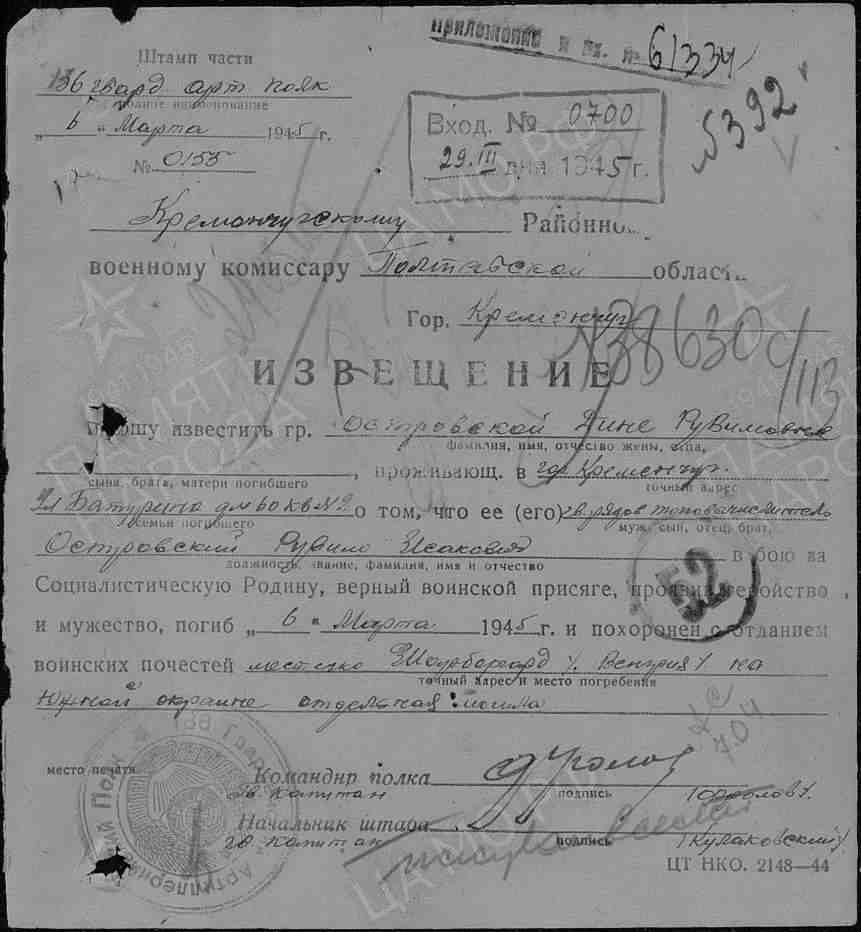 Приложение к вх. № 61334
Штамп части
136 гвард арт полк
полное наименование
"6" Марта 1945 г.
№ 0155
Вход. № 0700
29.III дня 1945 г.
5392
Кременчугскому Районно
военному комиссару Полтавской области
Гор. Кременчуг
№38630с/113
ИЗВЕЩЕНИЕ
Прошу известить гр. Островской Дине Рувимовне
фамилия, имя, отчество жены, отца,
, проживающ. в гор Кременчуг.
сына, брата, матери погибшего
точный адрес
Ул Батурина дом 60 кв №2 о том, что ее (его) гв рядов топовычислитель
семьи погибшего
муж, сын, отец, брат,
Островский Рувим Исакович в бою за
должность, звание, фамилия, имя и отчество
Социалистическую Родину, верный воинской присяге, проявив геройство
и мужество, погиб "6" Марта 1945 г. и похоронен с отданием
воинских почестей местечко /Венгрия/ на
точный адрес и место погребения
Южной окраине отдельная могила
52
место печати
Командир полка
гв капитан
подпись
Начальник штаба
гв капитан
подпись
/Кулаковский/
ЦТ НКО. 2148—44
ЦА МО РФ
ПАМЯТЬ НАРОДА
1941 1945